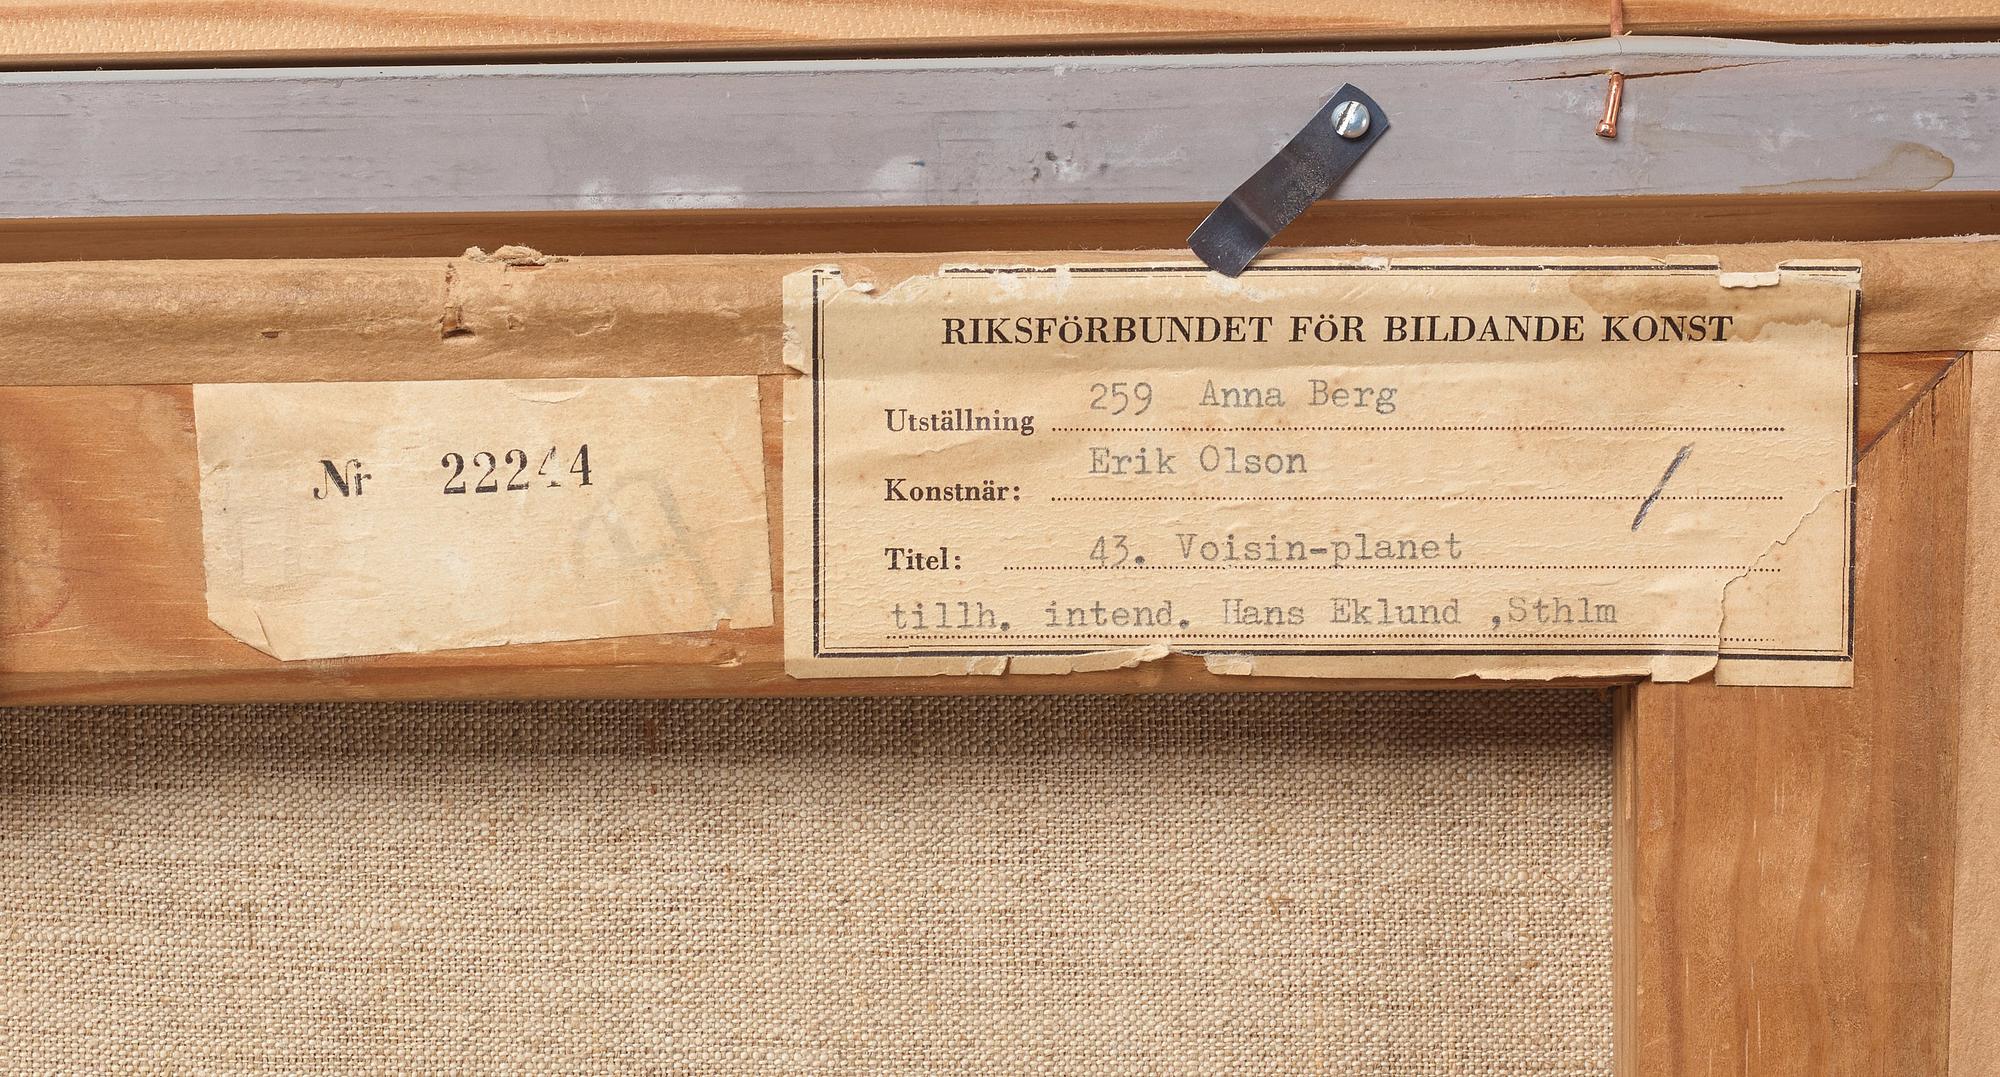 RIKSFÖRBUNDET FÖR BILDANDE KONST
Utställning 259 Anna Berg
Konstnär: Erik Olson
Titel: 43. Voisin-planet
tillh. intend. Hans Eklund ,Sthlm
Nr 22244